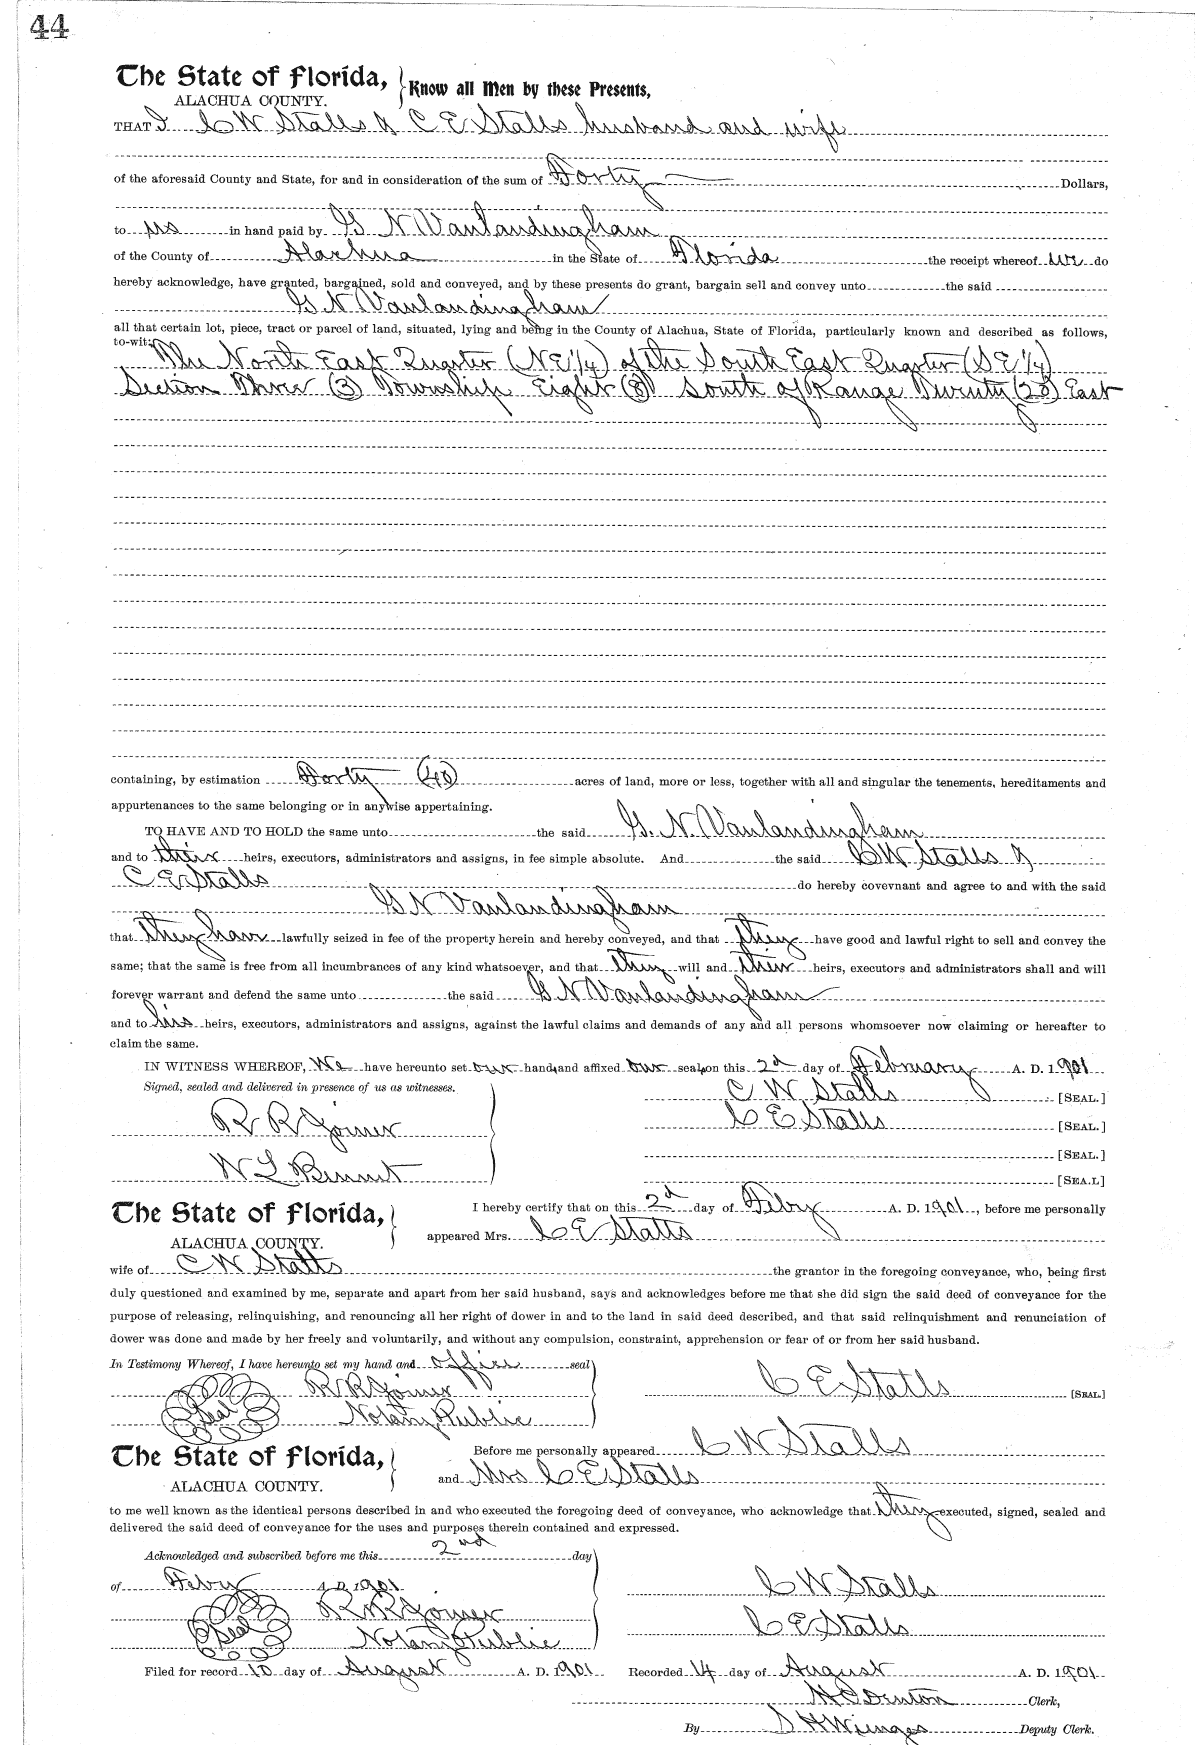 44
The State of Florida, Know all Men by these Presents,
ALACHUA COUNTY.
THAT I C W Stalls & C E Stalls husband and wife
of the aforesaid County and State, for and in consideration of the sum of Forty Dollars,
to us in hand paid by G N Vanlandingham
of the County of Alachua in the State of Florida the receipt whereof we do
hereby acknowledge, have granted, bargained, sold and conveyed, and by these presents do grant, bargain sell and convey unto the said
G N Vanlandingham
all that certain lot, piece, tract or parcel of land, situated, lying and being in the County of Alachua, State of Florida, particularly known and described as follows,
to-wit:
The North East Quarter (NE 1/4) of the South East Quarter (S E 1/4)
Section Three (3) Township Eight (8) South of Range Twenty (20) East
containing, by estimation Forty (40) acres of land, more or less, together with all and singular the tenements, hereditaments and
appurtenances to the same belonging or in anywise appertaining.
TO HAVE AND TO HOLD the same unto the said G. N. Vanlandingham
and to their heirs, executors, administrators and assigns, in fee simple absolute. And the said C W Stalls &
C E Stalls do hereby covevnant and agree to and with the said
G N Vanlandingham
that they have lawfully seized in fee of the property herein and hereby conveyed, and that they have good and lawful right to sell and convey the
same; that the same is free from all incumbrances of any kind whatsoever, and that they will and their heirs, executors and administrators shall and will
forever warrant and defend the same unto the said G N Vanlandingham
and to his heirs, executors, administrators and assigns, against the lawful claims and demands of any and all persons whomsoever now claiming or hereafter to
claim the same.
IN WITNESS WHEREOF, We have hereunto set our hand, and affixed our seal, on this 2d day of February A. D. 1901
Signed, sealed and delivered in presence of us as witnesses.
C W Stalls [SEAL.]
R R Joiner
C E Stalls [SEAL.]
[SEAL.]
W L Bennet
[SEA.L]
The State of Florida,
ALACHUA COUNTY.
I hereby certify that on this 2d day of Feby A. D. 1901, before me personally
appeared Mrs. C E Stalls
wife of C W Stalls the grantor in the foregoing conveyance, who, being first
duly questioned and examined by me, separate and apart from her said husband, says and acknowledges before me that she did sign the said deed of conveyance for the
purpose of releasing, relinquishing, and renouncing all her right of dower in and to the land in said deed described, and that said relinquishment and renunciation of
dower was done and made by her freely and voluntarily, and without any compulsion, constraint, apprehension or fear of or from her said husband.
In Testimony Whereof, I have hereunto set my hand and office seal
R R Joiner
C E Stalls [SEAL.]
Seal Notary Public
The State of Florida,
ALACHUA COUNTY.
Before me personally appeared C W Stalls
and Mrs C E Stalls
to me well known as the identical persons described in and who executed the foregoing deed of conveyance, who acknowledge that they executed, signed, sealed and
delivered the said deed of conveyance for the uses and purposes therein contained and expressed.
Acknowledged and subscribed before me this 2nd day
of Feby A. D. 1901
C W Stalls
R R Joiner
C E Stalls
Seal Notary Public
Filed for record 10 day of August A. D. 1901 Recorded 14 day of August A. D. 1901
H C Denton Clerk,
By S H Wienges Deputy Clerk.